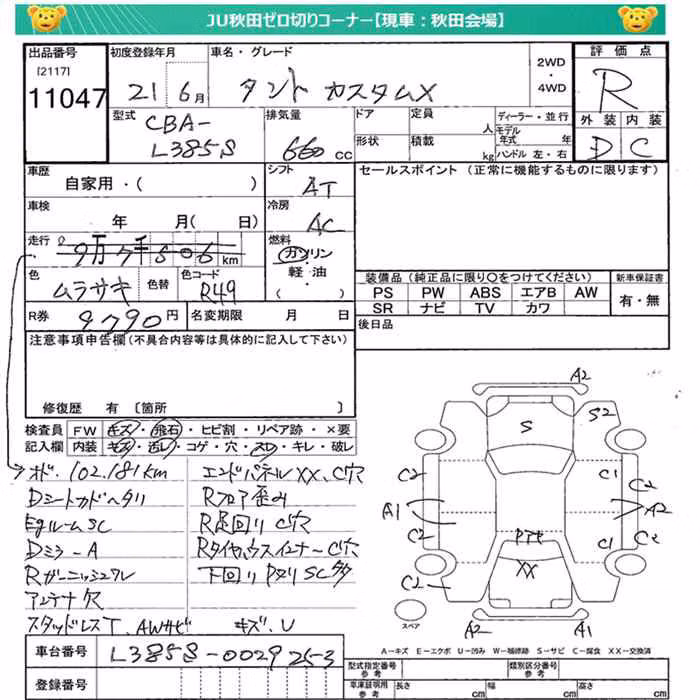 JU秋田ゼロ切りコーナー【現車：秋田会場】
出品番号 初度登録年月 車名・グレード 評価点
[2117]
11047 21 6月 タント カスタムX 2WD・4WD R
型式 排気量 ドア 定員 人 ディーラー・並行 外装 内装
CBA-
L385S 660cc 形状 積載 kg モデル年式 年 ハンドル 左・右 D C
車歴 シフト セールスポイント (正常に機能するものに限ります)
自家用・( ) AT
車検 冷房
年 月( 日) AC
走行 燃料
9万7千506km ガソリン・軽油・( )
色 色替 色コード 装備品 (純正品に限り○をつけてください) 新車保証書
ムラサキ R49 PS PW ABS エアB AW 有・無
SR ナビ TV カワ
R券 9790円 名変期限 月 日 後日品
注意事項申告欄(不具合内容等は具体的に記入して下さい)
修復歴 有 〔箇所 〕
検査員 FW キズ・飛石・ヒビ割・リペア跡・×要
記入欄 内装 キズ・汚レ・コゲ・穴・スレ・キレ・破レ
オド.102,181km エンドパネルXX、C穴
Dシートカドヘタリ Rフロア歪み
Egルーム SC R足回り C穴
Dミラ-A Rタイヤハウスインナ-C穴
Rガーニッシュワレ 下回り Pタリ SC多
アンテナ欠
スタッドレスT、AWサビ キズ、U
A2
S S2
C2 C1 C2
A1 A2
C2 C1 C2
XX
C2
A2 A1
スペア
A-キズ E-エクボ U-凹み W-補修跡 S-サビ C-腐食 XX-交換済
車台番号 L385S-0029253
型式指定番号 参考 類別区分番号 参考
登録番号 車車証明用 参考 長さ cm 幅 cm 高さ cm